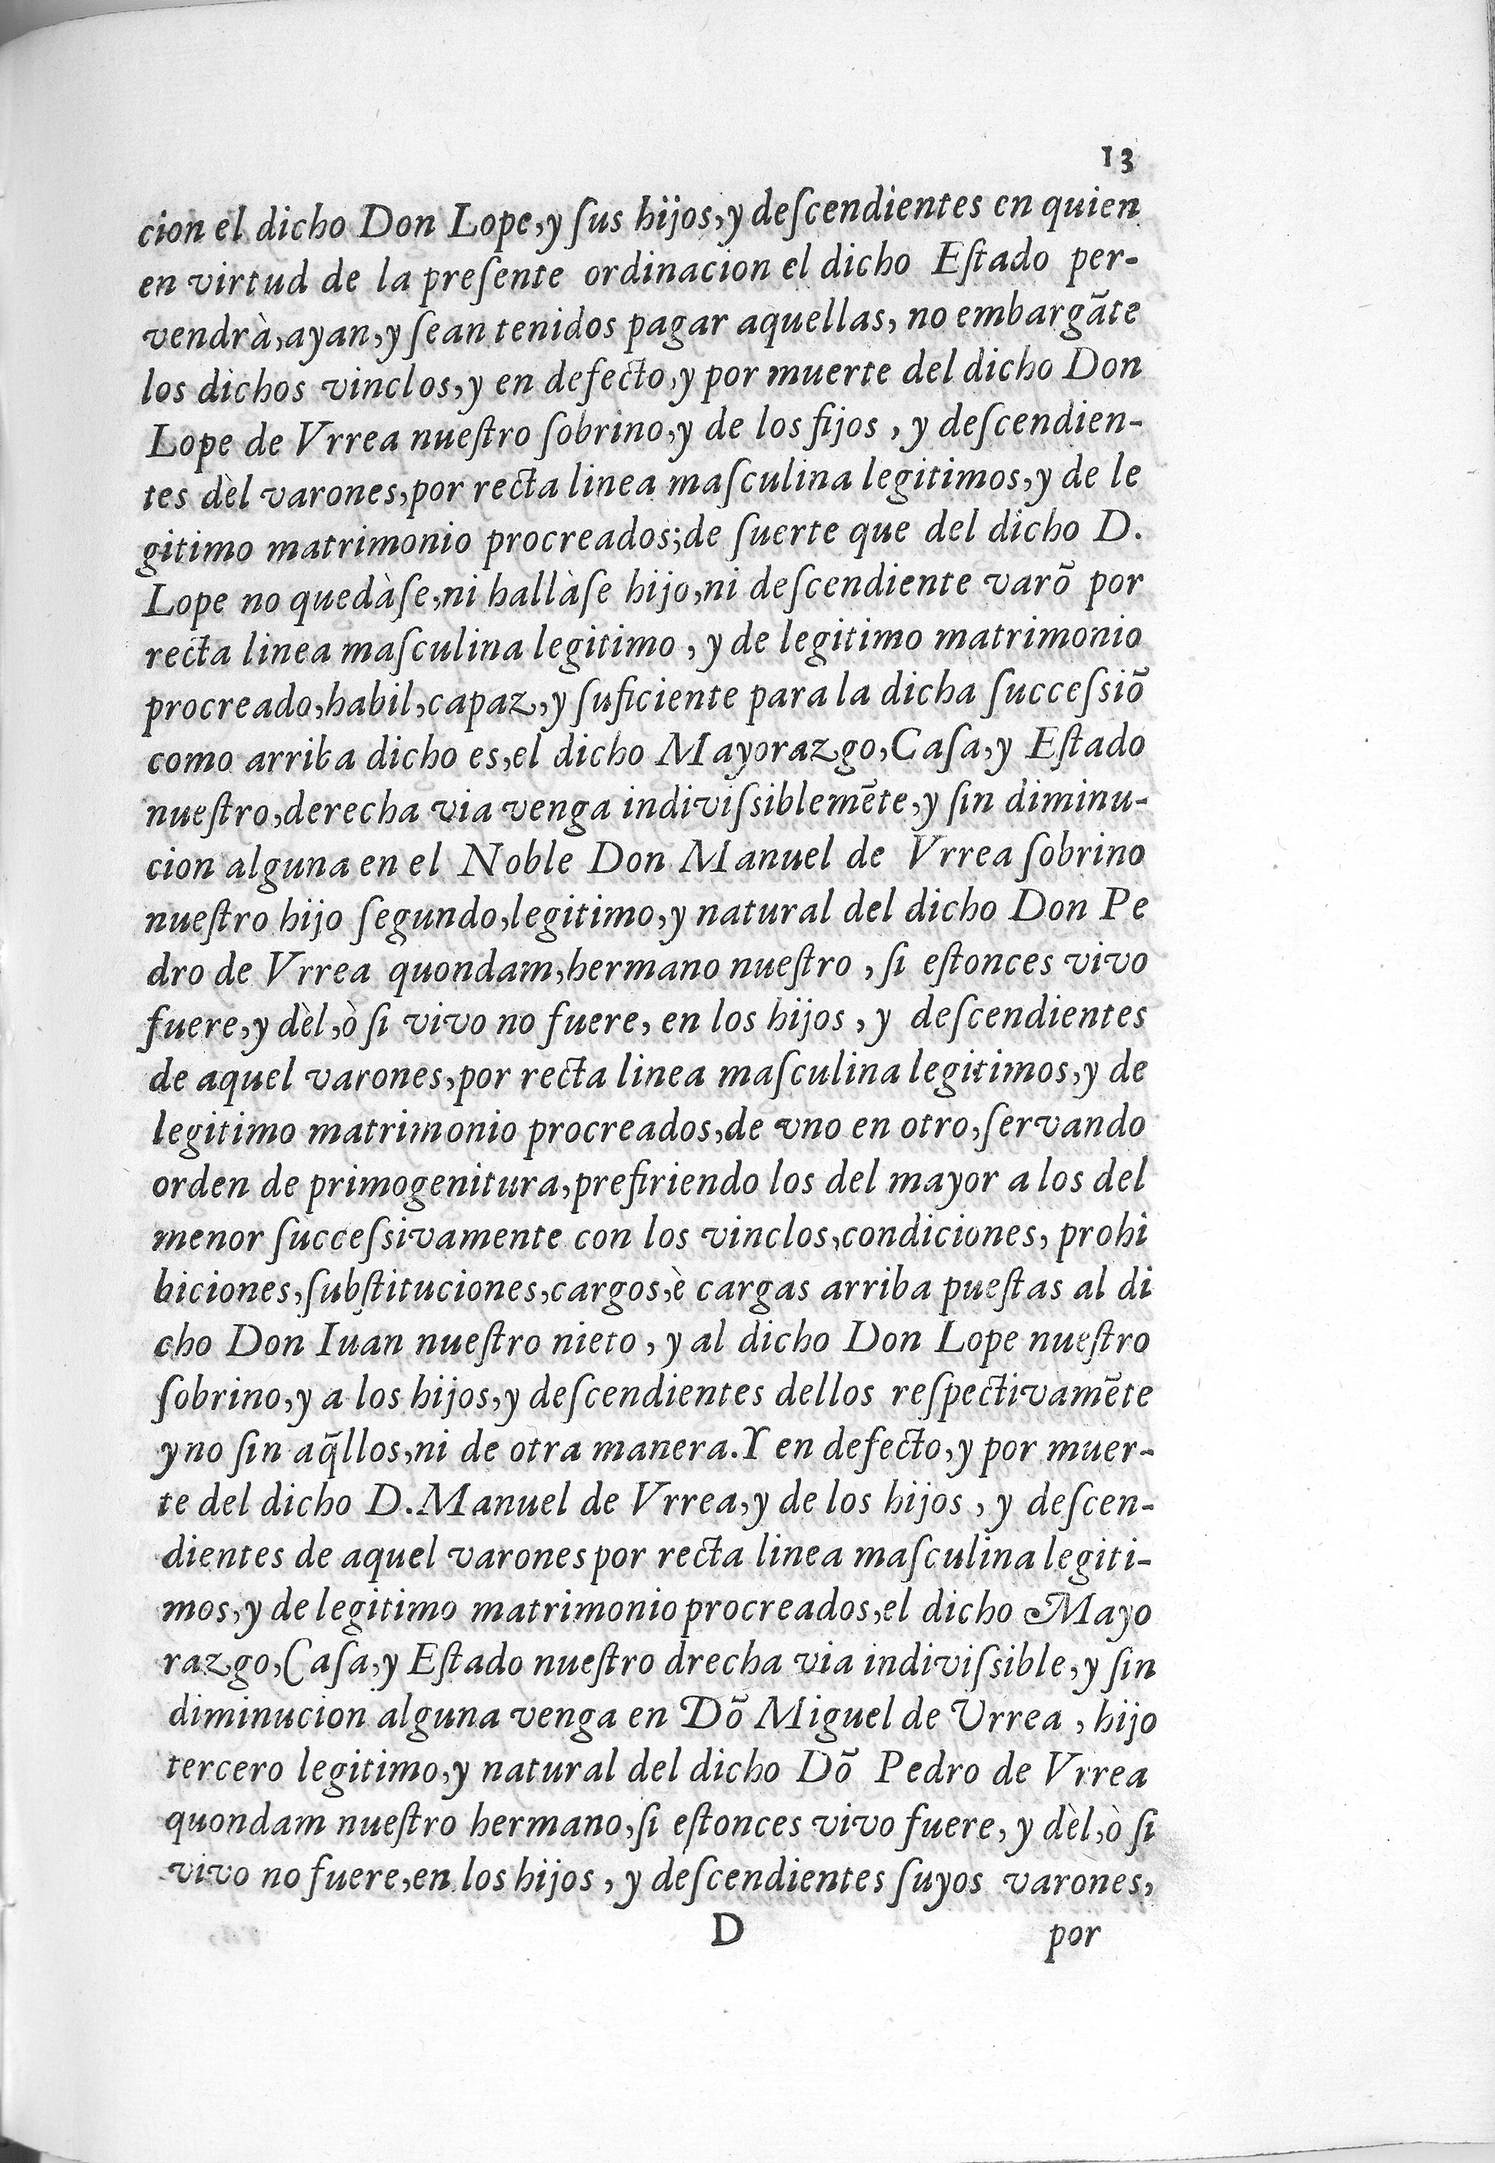 13
cion el dicho Don Lope, y ſus hijos, y deſcendientes en quien
en virtud de la preſente ordinacion el dicho Eſtado per-
vendrà, ayan, y ſean tenidos pagar aquellas, no embargãte
los dichos vinclos, y en defecto, y por muerte del dicho Don
Lope de Vrrea nueſtro ſobrino, y de los fijos, y deſcendien-
tes dèl varones, por recta linea maſculina legitimos, y de le
gitimo matrimonio procreados; de ſuerte que del dicho D.
Lope no quedàſe, ni hallàſe hijo, ni deſcendiente varõ por
recta linea maſculina legitimo, y de legitimo matrimonio
procreado, habil, capaz, y ſuficiente para la dicha ſucceſsiõ
como arriba dicho es, el dicho Mayorazgo, Caſa, y Eſtado
nueſtro, derecha via venga indiviſsiblemẽte, y ſin diminu-
cion alguna en el Noble Don Manuel de Vrrea ſobrino
nueſtro hijo ſegundo, legitimo, y natural del dicho Don Pe
dro de Vrrea quondam, hermano nueſtro, ſi eſtonces vivo
fuere, y dèl, ò ſi vivo no fuere, en los hijos, y deſcendientes
de aquel varones, por recta linea maſculina legitimos, y de
legitimo matrimonio procreados, de vno en otro, ſervando
orden de primogenitura, prefiriendo los del mayor a los del
menor ſucceſsivamente con los vinclos, condiciones, prohi
biciones, ſubſtituciones, cargos, è cargas arriba pueſtas al di
cho Don Iuan nueſtro nieto, y al dicho Don Lope nueſtro
ſobrino, y a los hijos, y deſcendientes dellos reſpectivamẽte
y no ſin aq̃llos, ni de otra manera. Y en defecto, y por muer-
te del dicho D. Manuel de Vrrea, y de los hijos, y deſcen-
dientes de aquel varones por recta linea maſculina legiti-
mos, y de legitimo matrimonio procreados, el dicho Mayo
razgo, Caſa, y Eſtado nueſtro drecha via indiviſsible, y ſin
diminucion alguna venga en Dõ Miguel de Urrea, hijo
tercero legitimo, y natural del dicho Dõ Pedro de Vrrea
quondam nueſtro hermano, ſi eſtonces vivo fuere, y dèl, ò ſi
vivo no fuere, en los hijos, y deſcendientes ſuyos varones,
D por